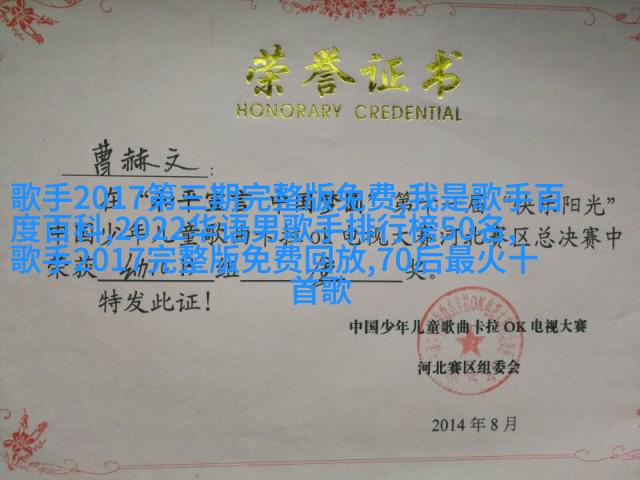 荣誉证书
HONORARY CREDENTIAL
曹赫文:
歌手2017第三期完整版免费,我是歌手百
度百科,2022华语男歌手排行榜50名,
歌手2017完整版免费回放,70后最火十
首歌
第十 届“快乐阳光”
中国少年儿童歌曲卡拉OK电视大赛河北赛区总决赛中
荣获 幼儿 班 奖。
特发此证!
中国少年儿童歌曲卡拉OK电视大赛
河北赛区组委会
2014年8月